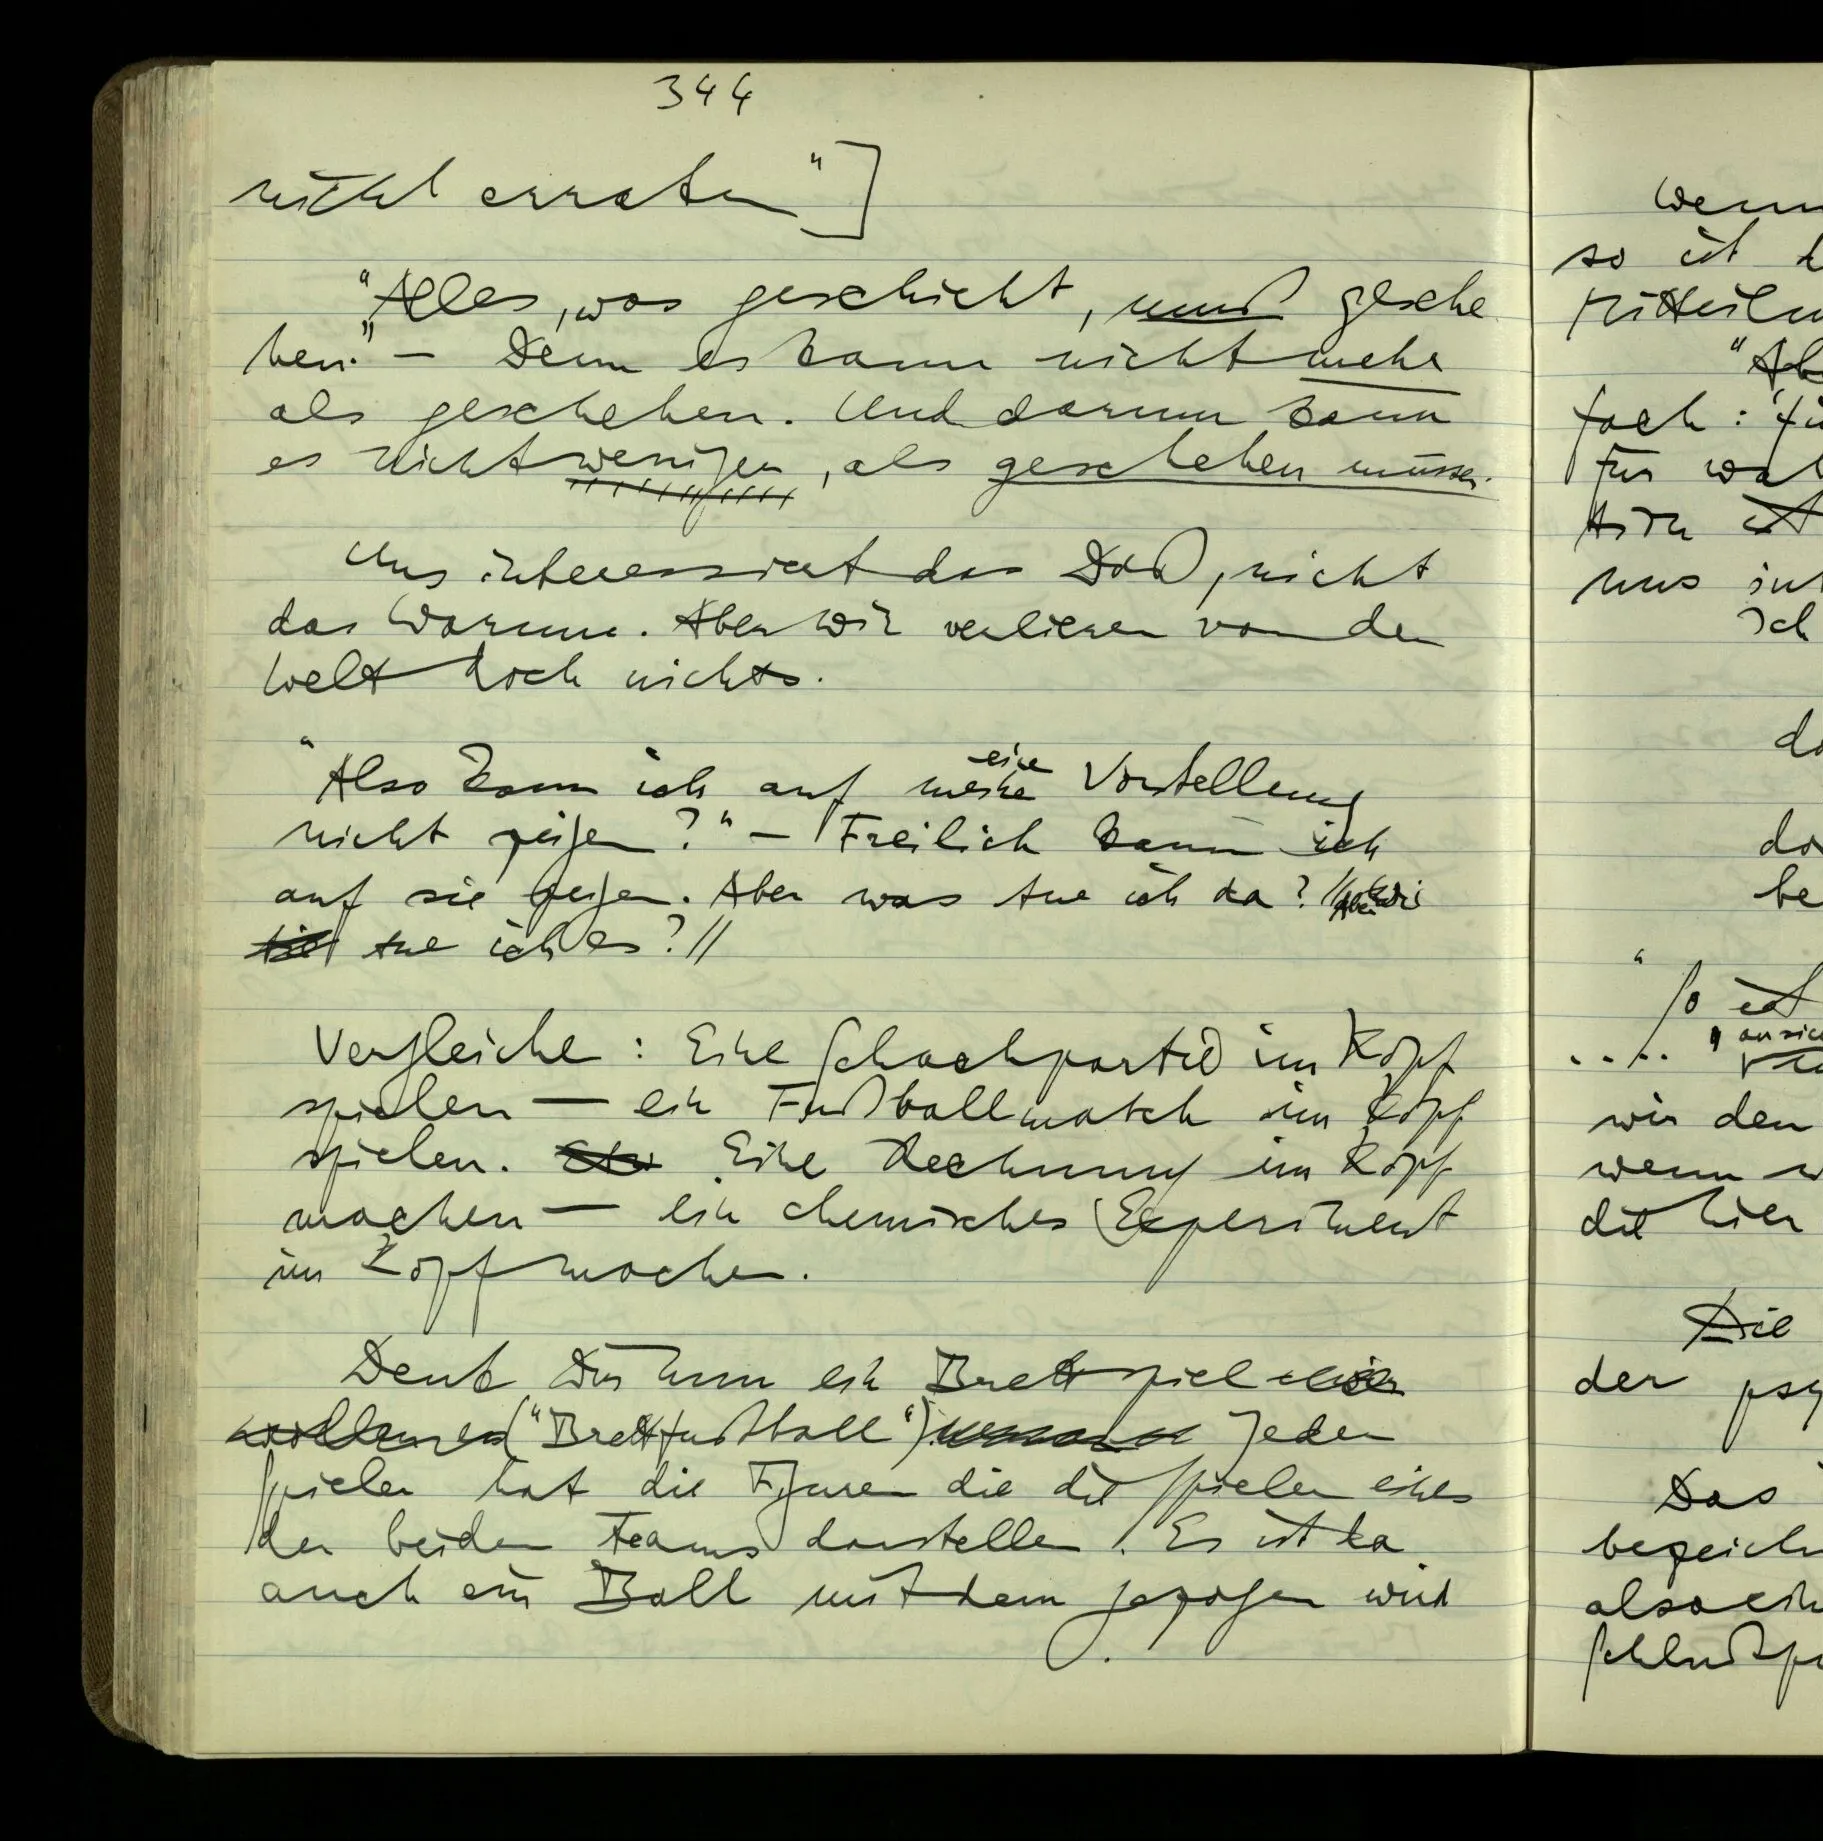 344
nicht erraten"]
"Alles, was geschieht, muß gesche
hen." — Denn es kann nicht mehr
als geschehen. Und darum kann
es nicht weniger, als geschehen müssen.
Uns interessiert das Daß, nicht
das Warum. Aber wir verlieren von der
Welt doch nichts.
"Also kann ich auf meine eine Vorstellung
nicht zeigen?" — Freilich kann ich
auf sie zeigen. Aber was tue ich da? // Aber wie
tue ich es? //
Vergleiche: Eine Schachpartie im Kopf
spielen — ein Fußballmatch im Kopf
spielen. Eine Rechnung im Kopf
machen — ein chemisches Experiment
im Kopf machen.
Denk Dir nun ein Brettspiel
("Brettfußball") Jeder
Spieler hat die Figuren die die Spieler eines
der beiden Teams darstellen. Es ist da
auch ein Ball mit dem gezogen wird
wenn
so ist
Mitteilu
"Ab
fach:
Für wah
Hirn ist
uns int
Ich
da
da
be
"
So ist
....
wir den
wenn w
die hier
Die
der psy
Das
bezeich
also ein
Schlußp